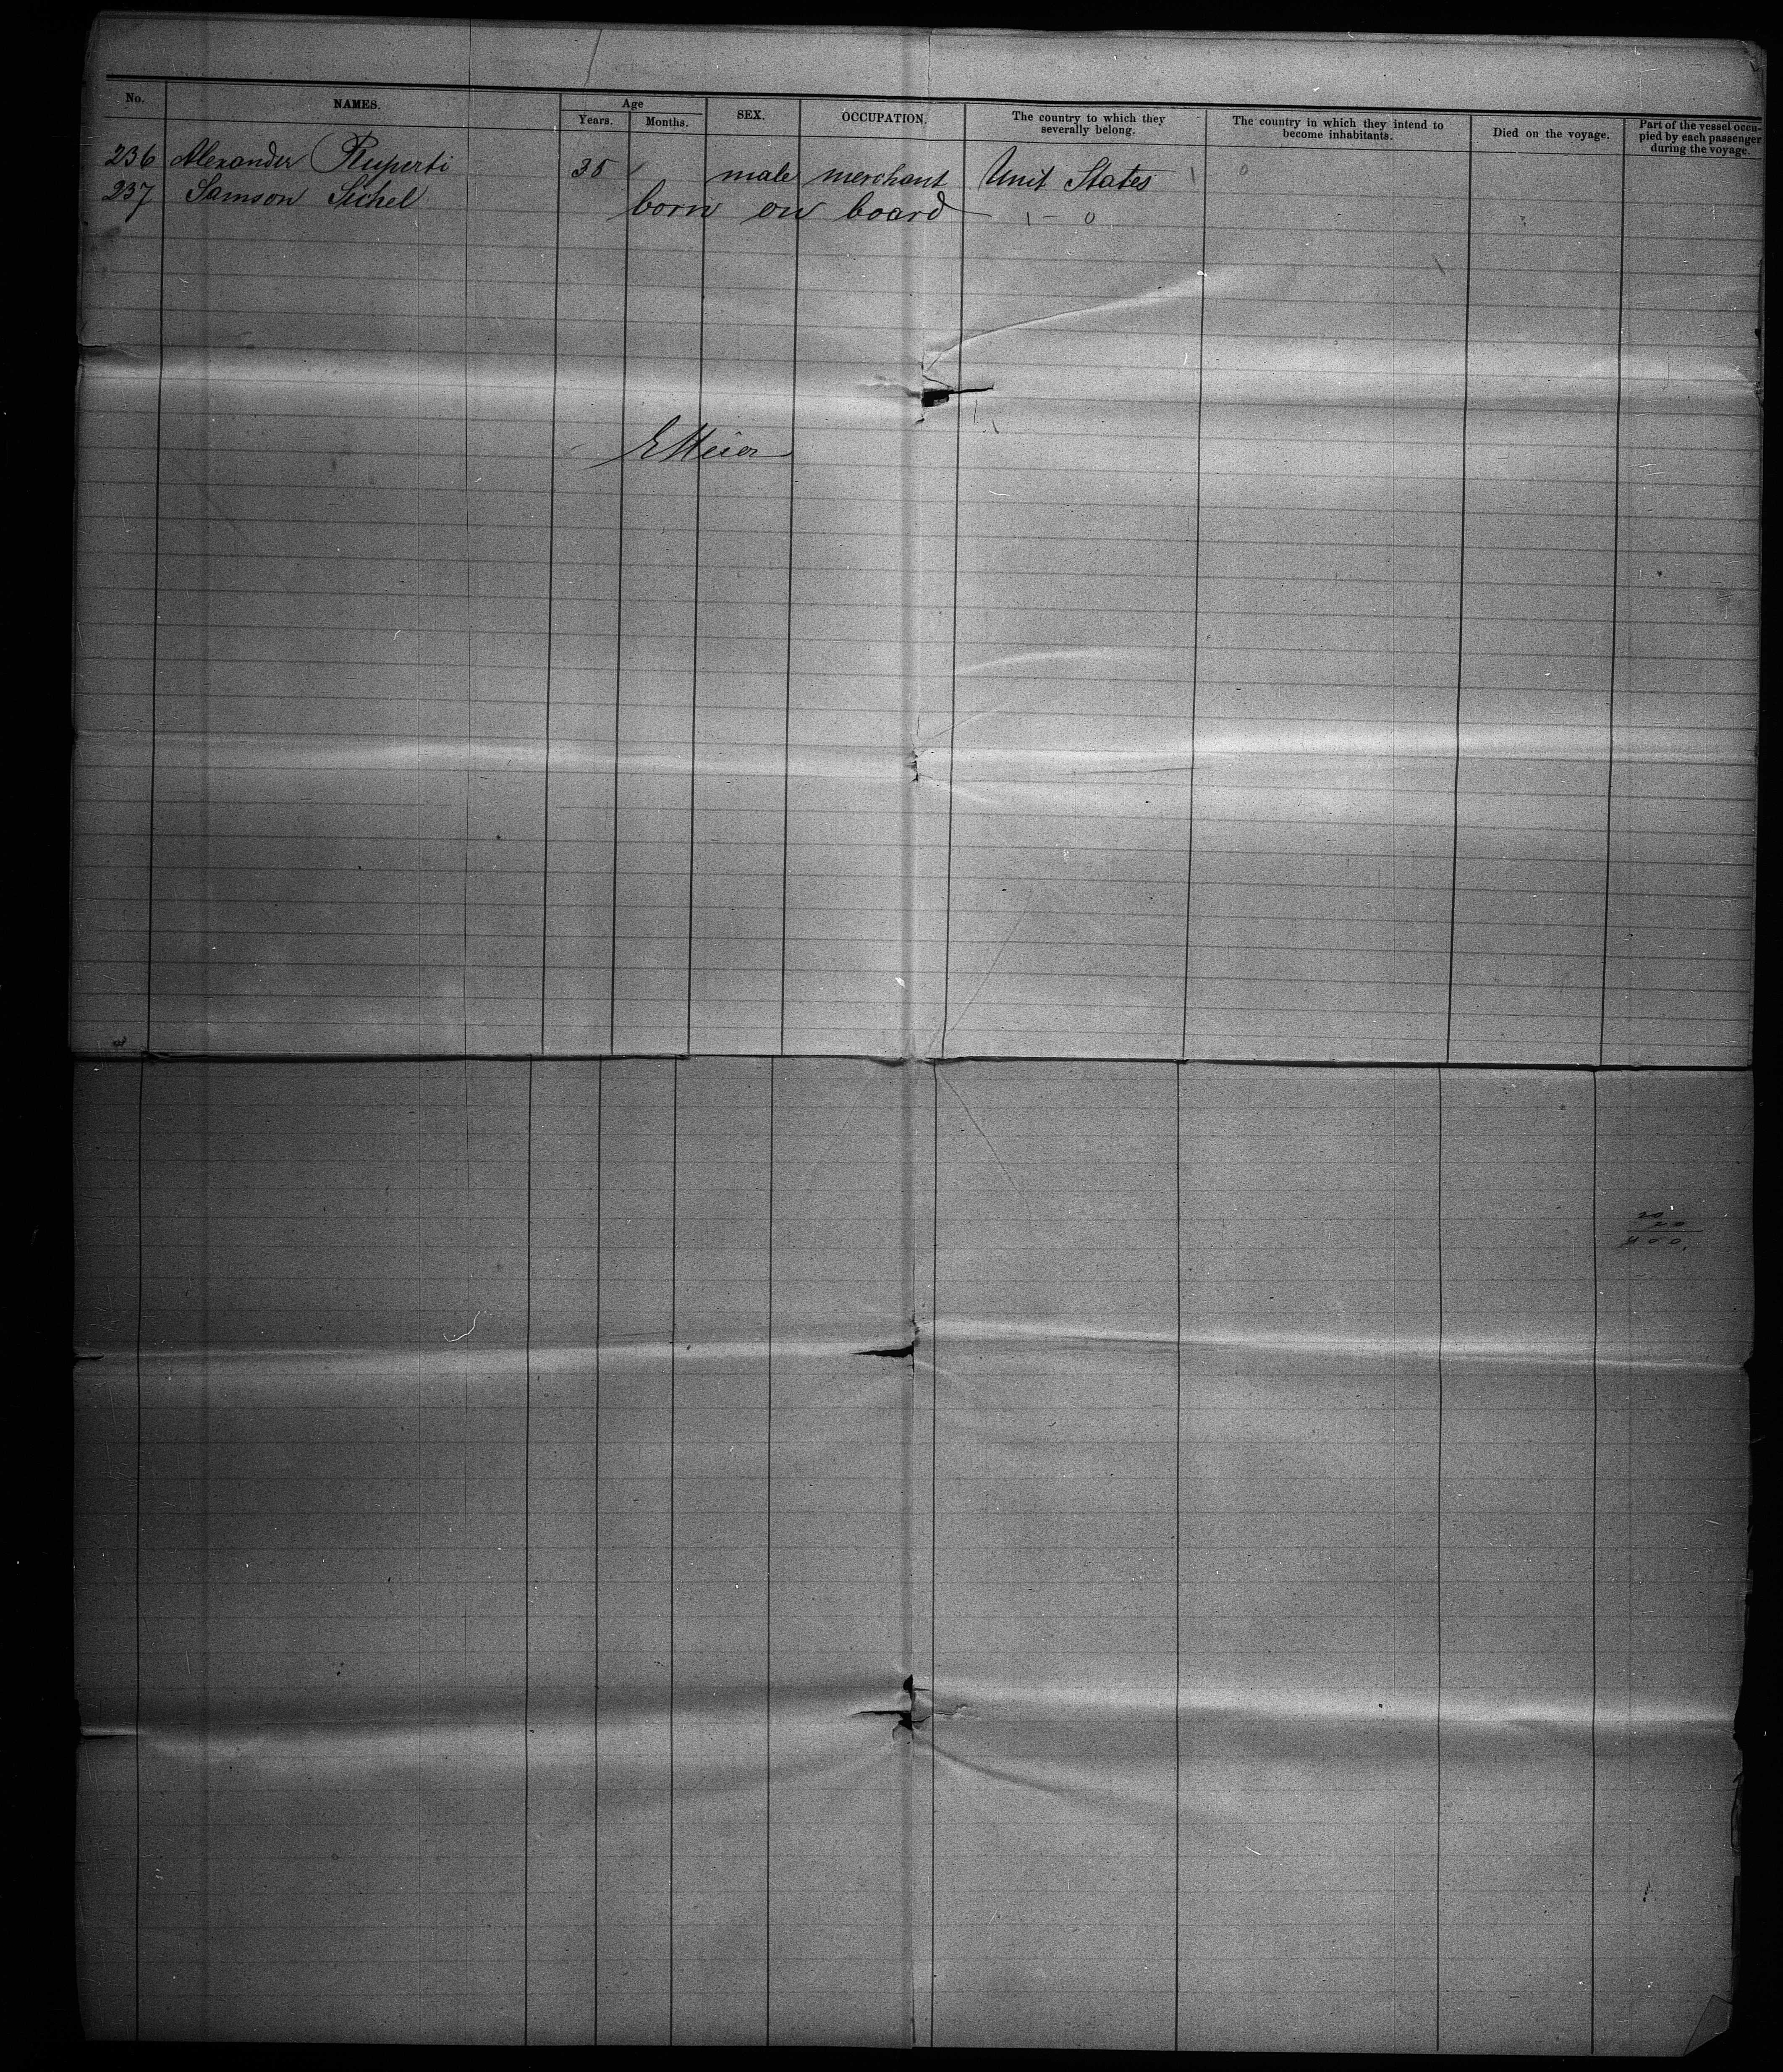 No. NAMES. Age Years. Months. SEX. OCCUPATION. The country to which they severally belong. The country in which they intend to become inhabitants. Died on the voyage. Part of the vessel occupied by each passenger during the voyage.
236 Alexander Ruperti 35 male merchant Unit States 1 0
237 Samson Sichel born on board 1 - 0
EMeier
20
20
400.